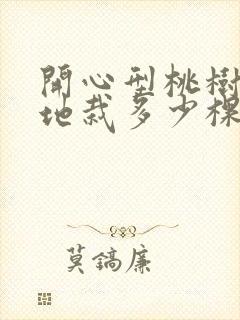 開心型桃樹
地栽多少棵
莫鎬廉